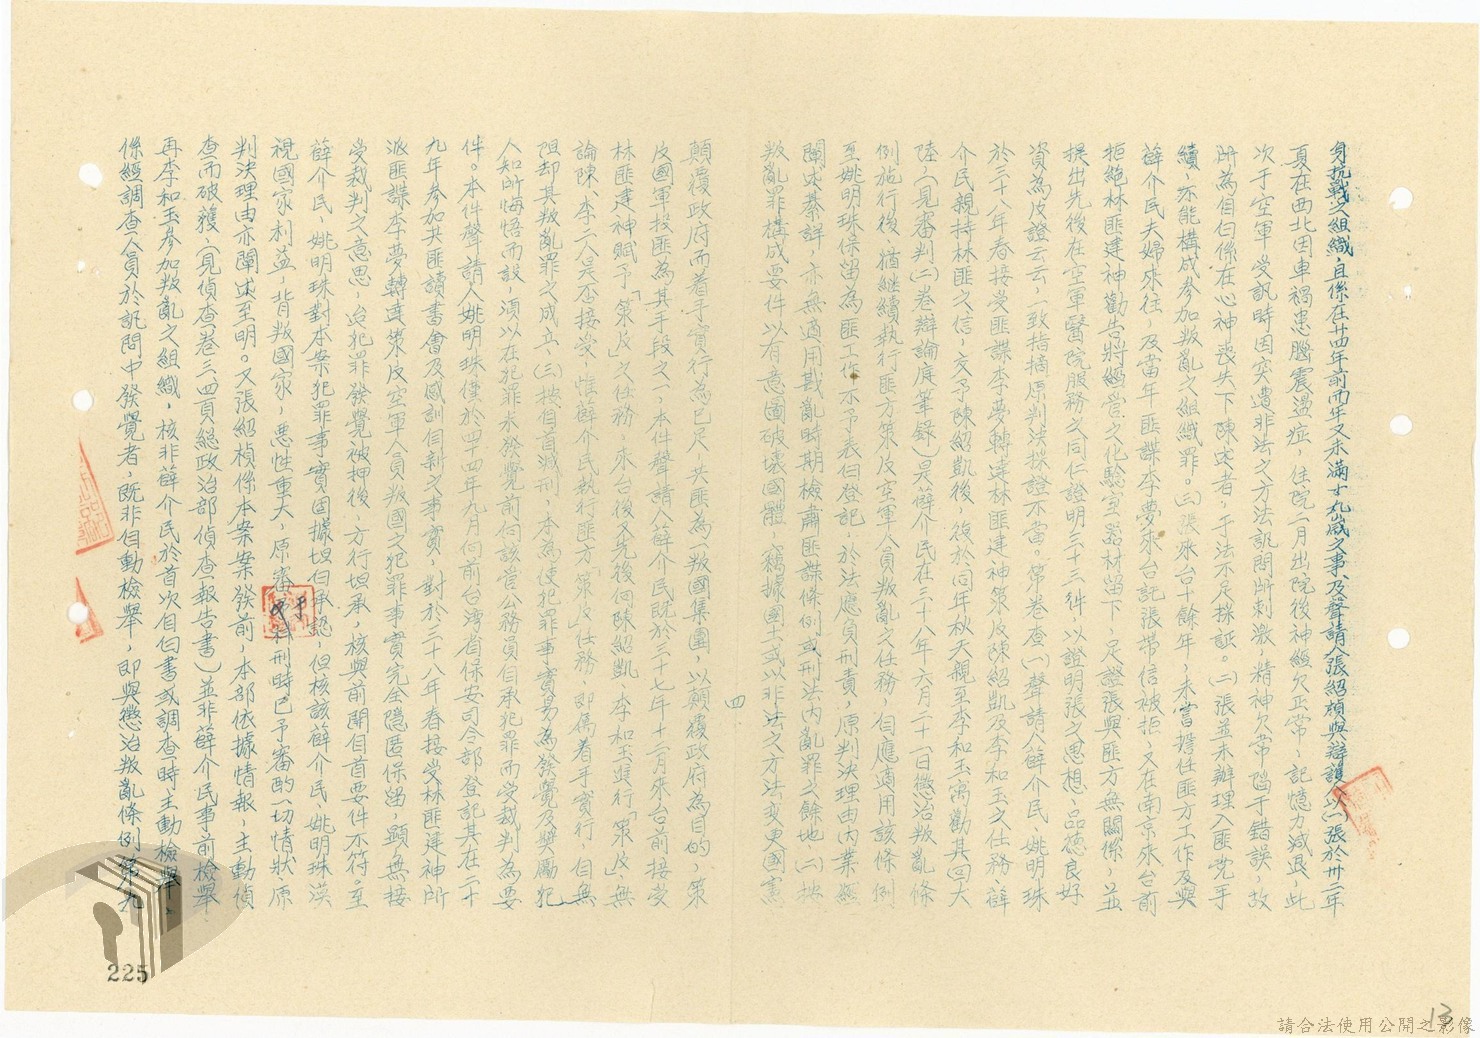 身抗戰之組織，且係在廿四年前而年又未滿十九歲之事及聲請人張紹楨與辯護以㈠張於卅二年
夏在西北因車禍患腦震盪症，住院二月出院後神經欠正常，記憶力減退，此
次于空軍受訊時因突遭非法之方法訊問所刺激，精神欠常陷于錯誤，故
所為自白係在心神喪失下陳述者，于法不足採証。㈡張並未辦理入匪党手
續，亦能構成參加叛亂之組織罪。㈢張來台十餘年，未嘗擔任匪方工作及與
薛介民夫婦來往，及當年匪諜李夢來台託張帶信被拒，又在南京來台前
拒絕林匪建神勸告將經管之化驗室器材留下，足證張與匪方無關係，並
提出先後在空軍醫院服務之同仁證明三十三件，以證明張之思想、品德良好
資為反證云云，一致指摘原判決採證不當。第卷查㈠聲請人薛介民、姚明珠
於三十八年春接受匪諜李夢轉達林匪建神策反陳紹凱及李和玉之任務，薛
介民親持林匪之信，交予陳紹凱後，復於同年秋天親至李和玉寓勸其回大
陸，（見審判㈡卷辯論庭筆錄）是薛介民在三十八年六月二十一日懲治叛亂條
例施行後，猶繼續執行匪方策反空軍人員叛亂之任務，自應適用該條例
至姚明珠保留為匪工作不予表白登記，於法應負刑責，原判決理由內業經
闡述綦詳，亦無適用戡亂時期檢肅匪諜條例或刑法內亂罪之餘地㈡按
叛亂罪構成要件以有意圖破壞國體，竊據國土或以非法之方法變更國憲
四
顛覆政府而着手實行為已足，共匪為一叛國集團，以顛覆政府為目的，策
反國軍投匪為其手段之一，本件聲請人薛介民既於三十七年十二月來台前接受
林匪建神賦予「策反」之任務，來台後又先後向陳紹凱、李和玉進行「策反」，無
論陳、李二人是否接受，惟薛介民執行匪方「策反」任務，即屬着手實行，自無
阻却其叛亂罪之成立，㈢按自首減刑，本為使犯罪事實易為發覺及獎勵犯
人知所悔悟而設，須以在犯罪未發覺前向該管公務員自承犯罪而受裁判為要
件。本件聲請人姚明珠僅於四十四年九月向前台灣省保安司令部登記其在二十
九年參加共匪讀書會及感訓自新之事實，對於三十八年春接受林匪建神所
派匪諜李夢轉達策反空軍人員叛國之犯罪事實完全隱匿保留，顯無接
受裁判之意思，迨犯罪發覺被押後，方行坦承，核與前開自首要件不符。至
薛介民、姚明珠對本案犯罪事實固據坦白承認，但核該薛介民、姚明珠漠
視國家利益，背叛國家，惡性重大，原審於科刑時已予審酌一切情狀原
判決理由亦闡述至明。又張紹楨係本案案發前，本部依據情報，主動偵
查而破獲，（見偵查㈠卷三四頁總政治部偵查報告書）並非薛介民事前檢舉，
再李和玉參加叛亂之組織，核非薛介民於首次自白書或調查時主動檢舉，
係經調查人員於訊問中發覺者，既非自動檢舉，即與懲治叛亂條例第九
225
13
請合法使用公開之影像